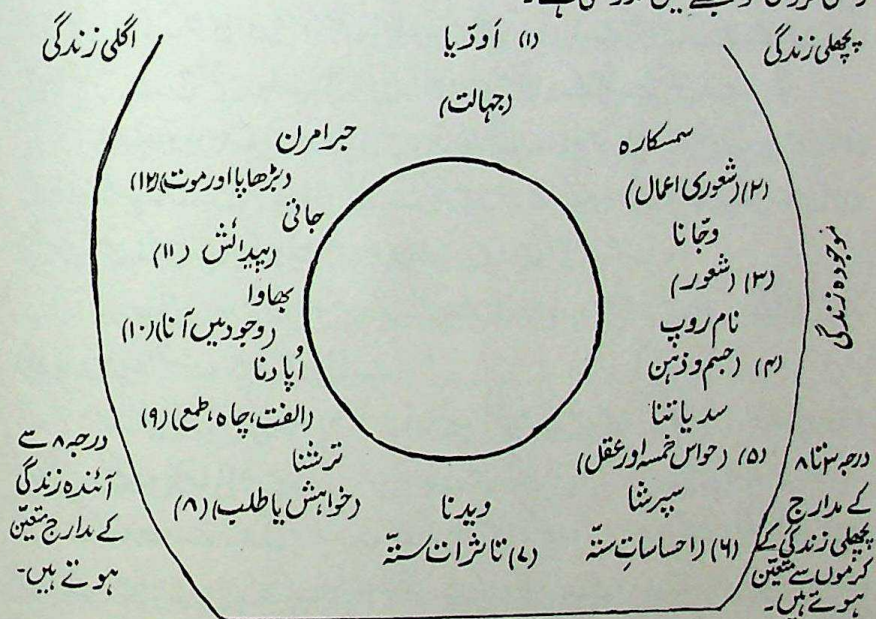 پچھلی زندگی
(۱) اَودّیا
(جہالت)
اگلی زندگی
سمسکارہ
(۲) (شعوری اعمال)
وجّانا
(۳) (شعور)
نام روپ
(۴) (جسم و ذہن
سدیاتنا
(۵) (حواس خمسہ اور عقل)
سپرشنا
(۶) (احساساتِ ستّہ
ویدنا
(۷) تاثرات ستّہ
ترشنا
(خواہش یا طلب) (۸)
اُپادنا
(الفت، چاہ، طمع) (۹)
بھاوا
(وجود میں آنا) (۱۰)
جاتی
(پیدائش (۱۱)
جرامرن
(بڑھاپا اور موت) (۱۲)
موجودہ زندگی
درجہ ۳ تا ۸
کے مدارج
پچھلی زندگی کے
کرموں سے متعیّن
ہوتے ہیں۔
درجہ ۸ سے
آئندہ زندگی
کے مدارج متعیّن
ہوتے ہیں۔